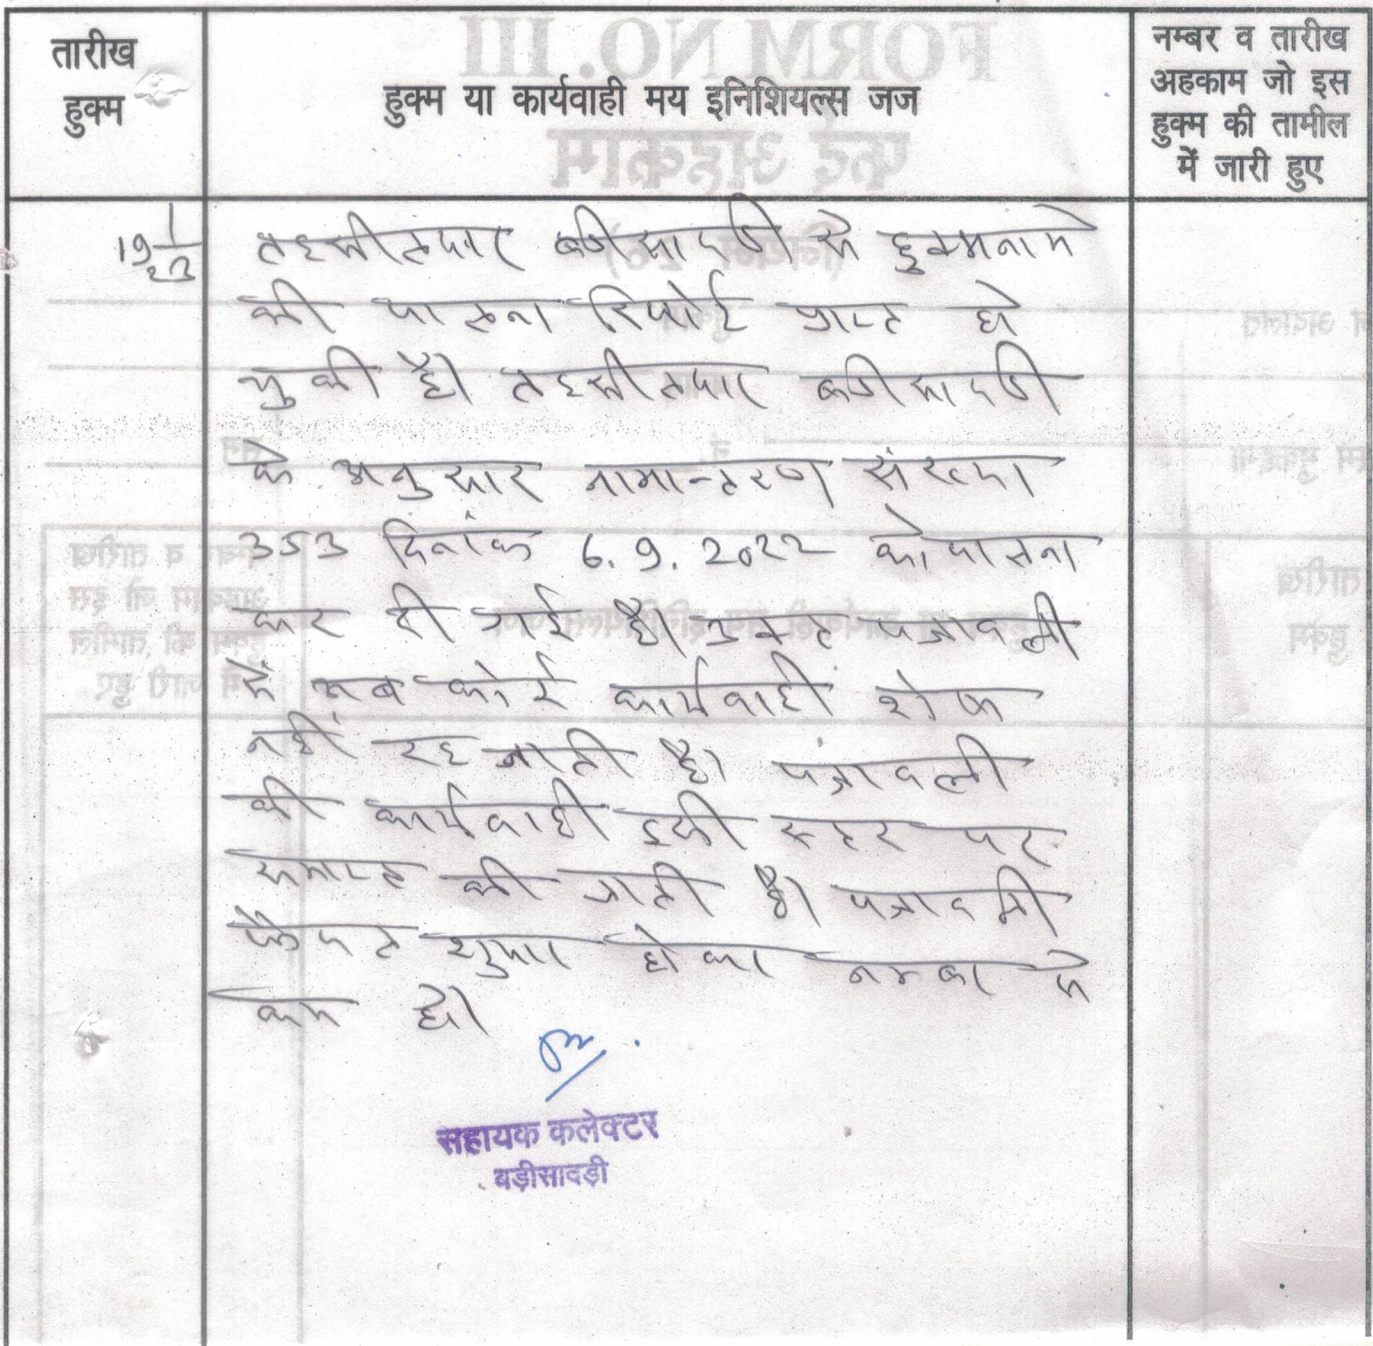 तारीख
हुक्म
हुक्म या कार्यवाही मय इनिशियल्स जज
नम्बर व तारीख
अहकाम जो इस
हुक्म की तामील
में जारी हुए
19/1/23
तहसीलदार बडीसादडी से हुक्मनामे
की पालना रिपोर्ट प्राप्त हो
चुकी है। तहसीलदार बडीसादडी
के अनुसार नामान्तरण संख्या
353 दिनांक 6.9.2022 को पालना
कर दी गई है। उक्त पत्रावली
में अब कोई कार्यवाही शेष
नहीं रह जाती है। पत्रावली
की कार्यवाही इसी स्तर पर
समाप्त की जाती है। पत्रावली
फैसल शुमार होकर नम्बर से
कम हो।
सहायक कलेक्टर
बड़ीसादड़ी
FORM NO. III
फर्द अहकाम
नम्बर व तारीख
अहकाम जो इस
हुक्म की तामील
में जारी हुए
तारीख
हुक्म